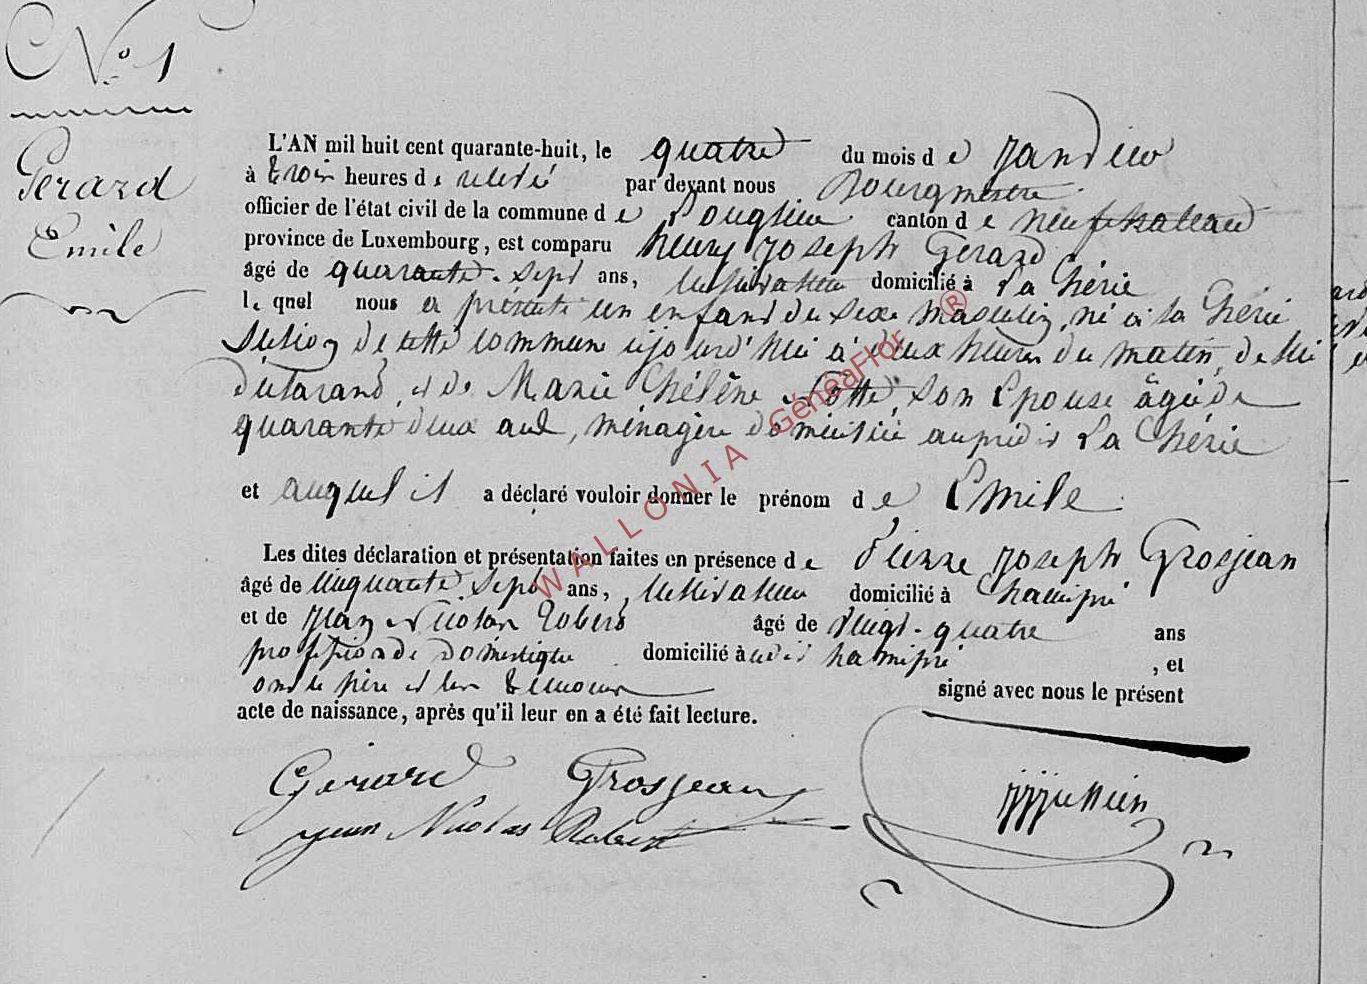 N.º 1
Gérard
Emile
L'AN mil huit cent quarante-huit, le quatre du mois de Janvier
à trois heures de relevé par devant nous Bourgmestre
officier de l'état civil de la commune de Longlier canton de neufchateau
province de Luxembourg, est comparu henry Joseph Gerard
âgé de quarante-sept ans, cultivateur domicilié à La Chérie
le quel nous a présenté un enfant du sexe masculin, né à la Chérie
section de cette commune cejourd'hui à deux heures du matin, de lui
déclarant, et de Marie Chélêne son Epouse âgée de
quarante deux ans, ménagère domiciliée au prédit La Chérie
et auquel il a déclaré vouloir donner le prénom de Emile
Les dites déclaration et présentation faites en présence de Pierre Joseph Grosjean
âgé de cinquante-sept ans, cultivateur domicilié à hamipré
et de Jean Nicolas Robert âgé de vingt-quatre ans
profession de domestique domicilié à hamipré, et
ont le père et les temoins signé avec nous le présent
acte de naissance, après qu'il leur en a été fait lecture.
Gérard Grosjean
Jean Nicolas Robert
WALLONIA GénéaFlor ®